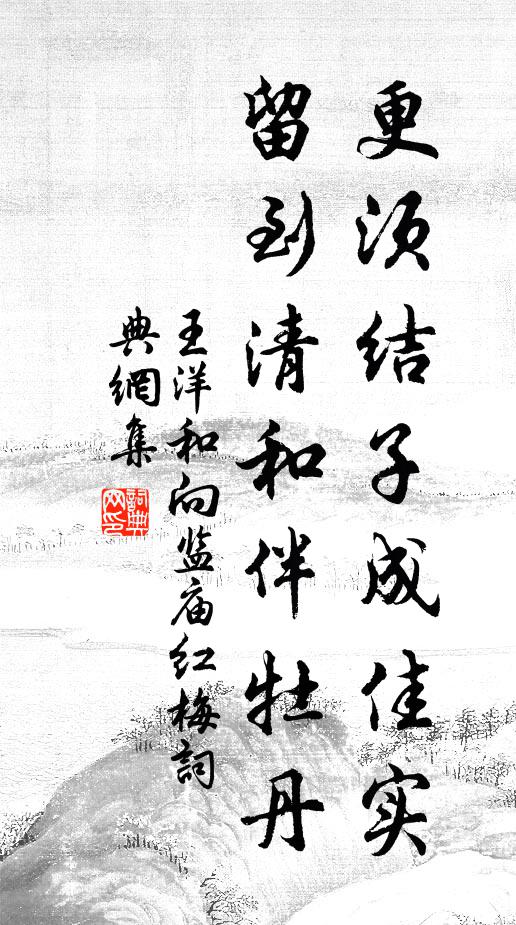 更须结子成佳实
留到清和伴牡丹
王洋和向监庙红梅词
典網集
詞典網印